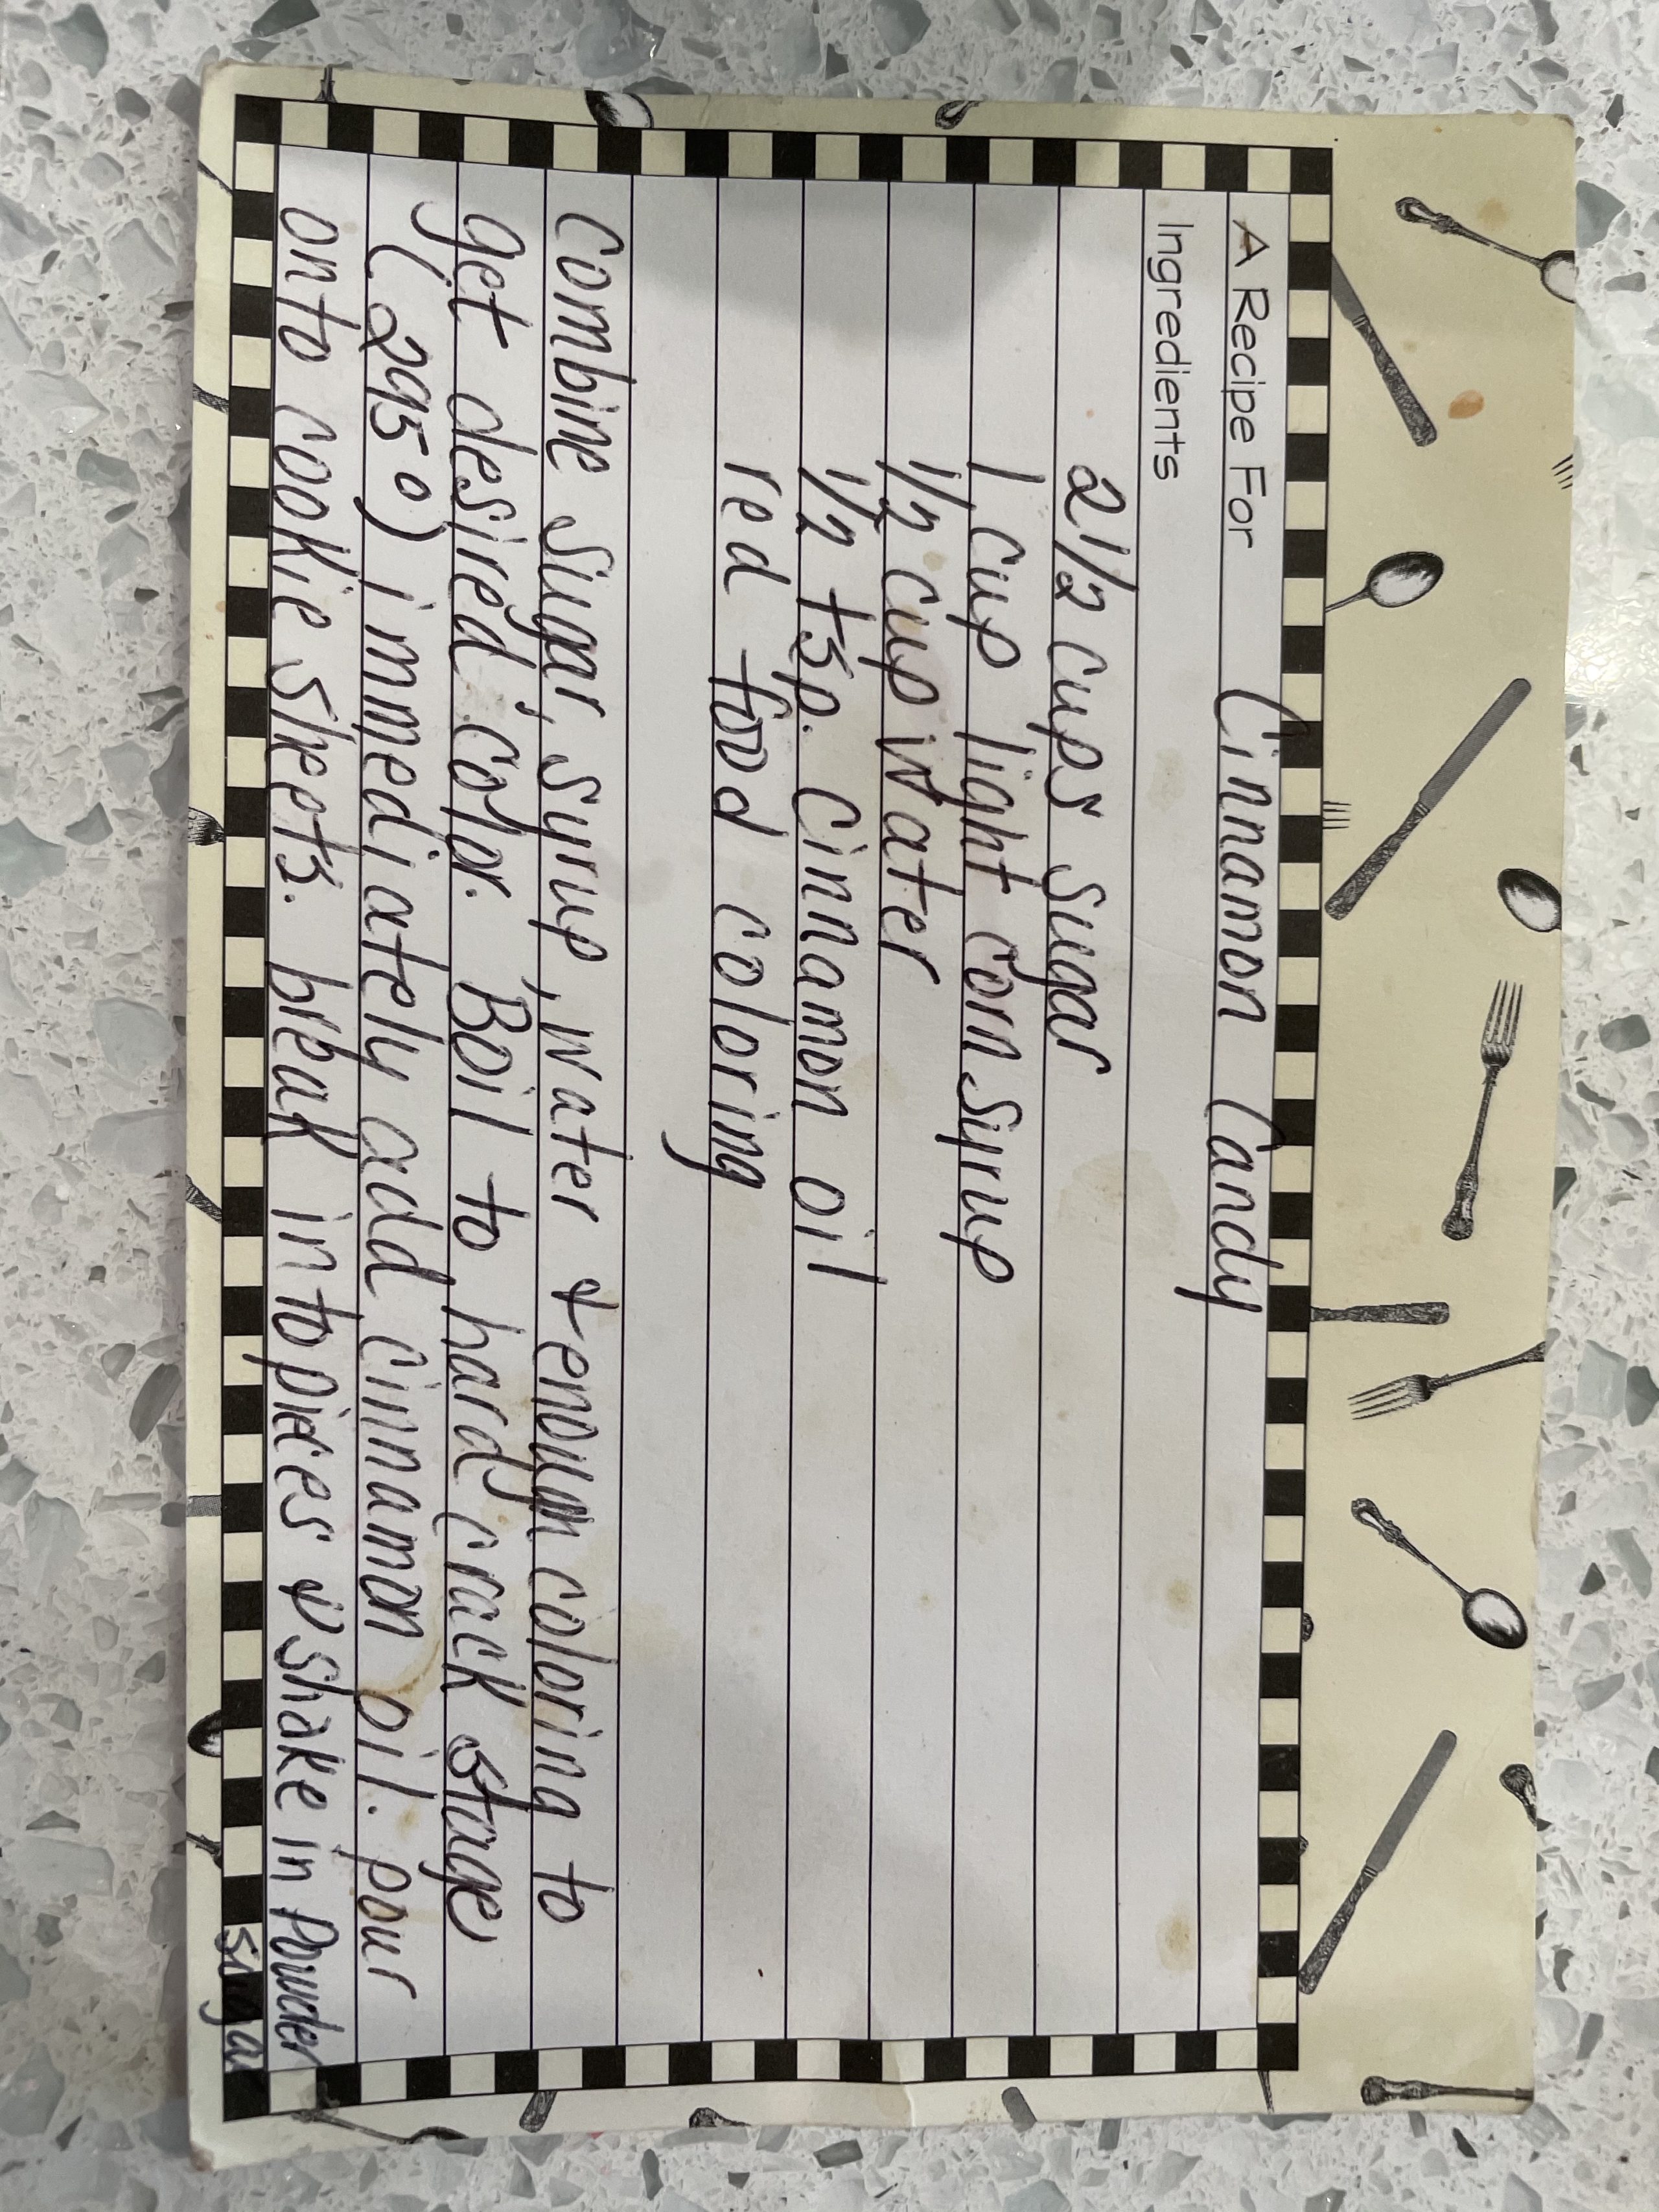 A Recipe For Cinnamon Candy
Ingredients
2 1/2 cups sugar
1 cup light corn sirup
1/2 cup water
1/2 tsp. Cinnamon oil
red food coloring
Combine sugar, syrup, water & enough coloring to
get desired color. Boil to hard crack stage
(295°) immediately add cinnamon oil. pour
onto cookie sheets. break into pieces & shake in Powder
sugar